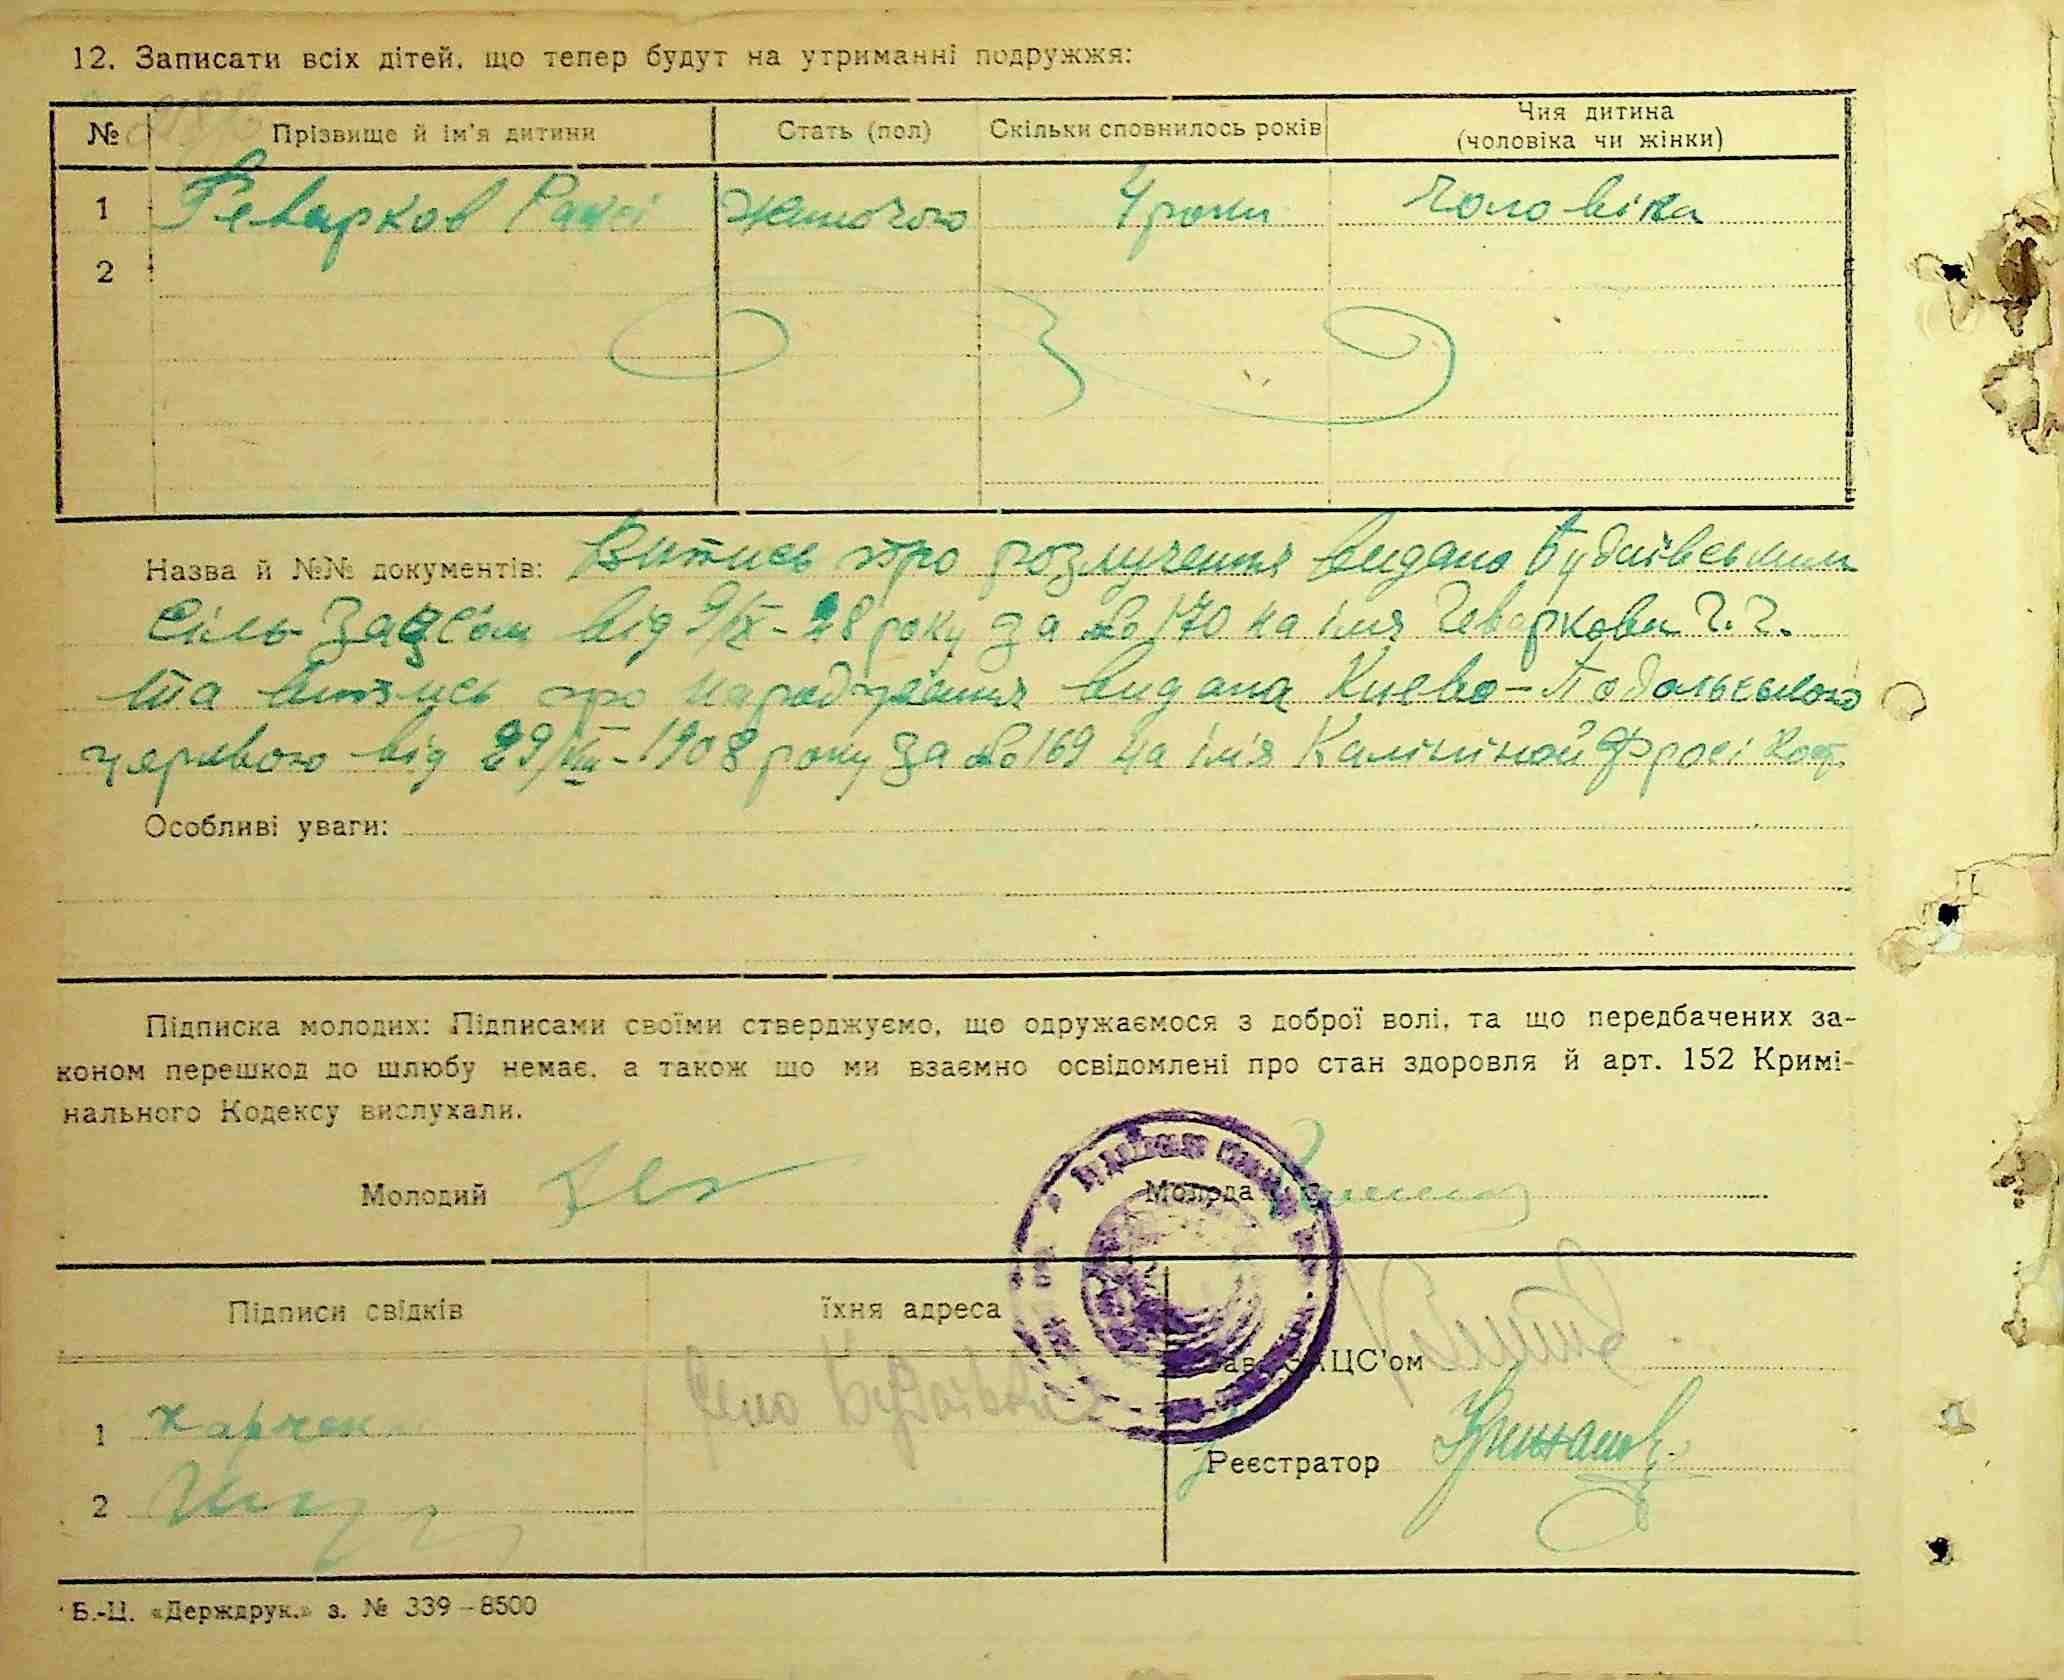 12. Записати всіх дітей, що тепер будут на утриманні подружжя:
№ Прізвище й ім'я дитини Стать (пол) Скільки сповнилось років Чия дитина (чоловіка чи жінки)
1 Геварков жиночого 4 роки чоловіка
2
Назва й №№ документів: Витись про розлучення видано Будаївським
Сіль Загсом від 9/IX-28 року за № 170 на імя Геваркова Г. Г.
та витись про народження видана Киево-Подольського
церквою від 29/VIII-1908 року за № 169 на імя Калініной Фросі
Особливі уваги:
Підписка молодих: Підписами своїми стверджуємо, що одружаємося з доброї волі, та що передбачених за-
коном перешкод до шлюбу немає, а також що ми взаємно освідомлені про стан здоровля й арт. 152 Кримі-
нального Кодексу вислухали.
Молодий Молода
Підписи свідків їхня адреса
Зав. ЗАЦС'ом
1 село Будаівка
Реєстратор
2
Б.-Ц. «Держдрук.» з. № 339–8500